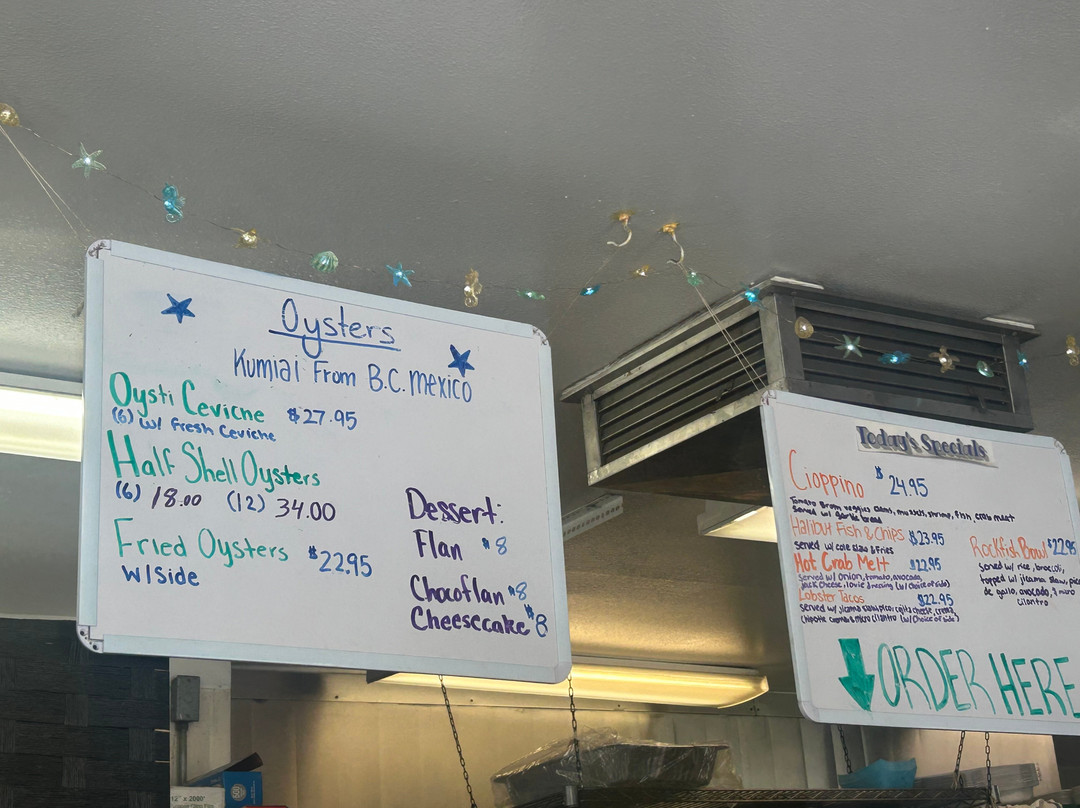 Oysters
Kumiai From B.C. Mexico
Oysti Ceviche $27.95
(6) w/ Fresh Ceviche
Half Shell Oysters
(6) 18.00 (12) 34.00
Fried Oysters $22.95
w/Side
Dessert:
Flan $8
Chocoflan $8
Cheesecake $8
Today's Specials
Cioppino $24.95
Tomato Brom veggies clams, mussels, shrimp, fish, crab meat
Served w/ garlic bread
Halibut Fish & Chips $23.95
served w/ cole slaw & Fries
Hot Crab Melt $22.95
Served w/ Onion, tomato, avocado,
Jack Cheese, louie dressing (w/ Choice of side)
Lobster Tacos $22.95
served w/ Jicama slaw, pico, cojita cheese, crema,
Chipotle crema & micro cilantro (w/ Choice of side)
Rockfish Bowl $22.95
Served w/ rice, broccoli,
topped w/ jicama slaw, pico
de gallo, avocado, & micro
cilantro
ORDER HERE
12" x 2000'